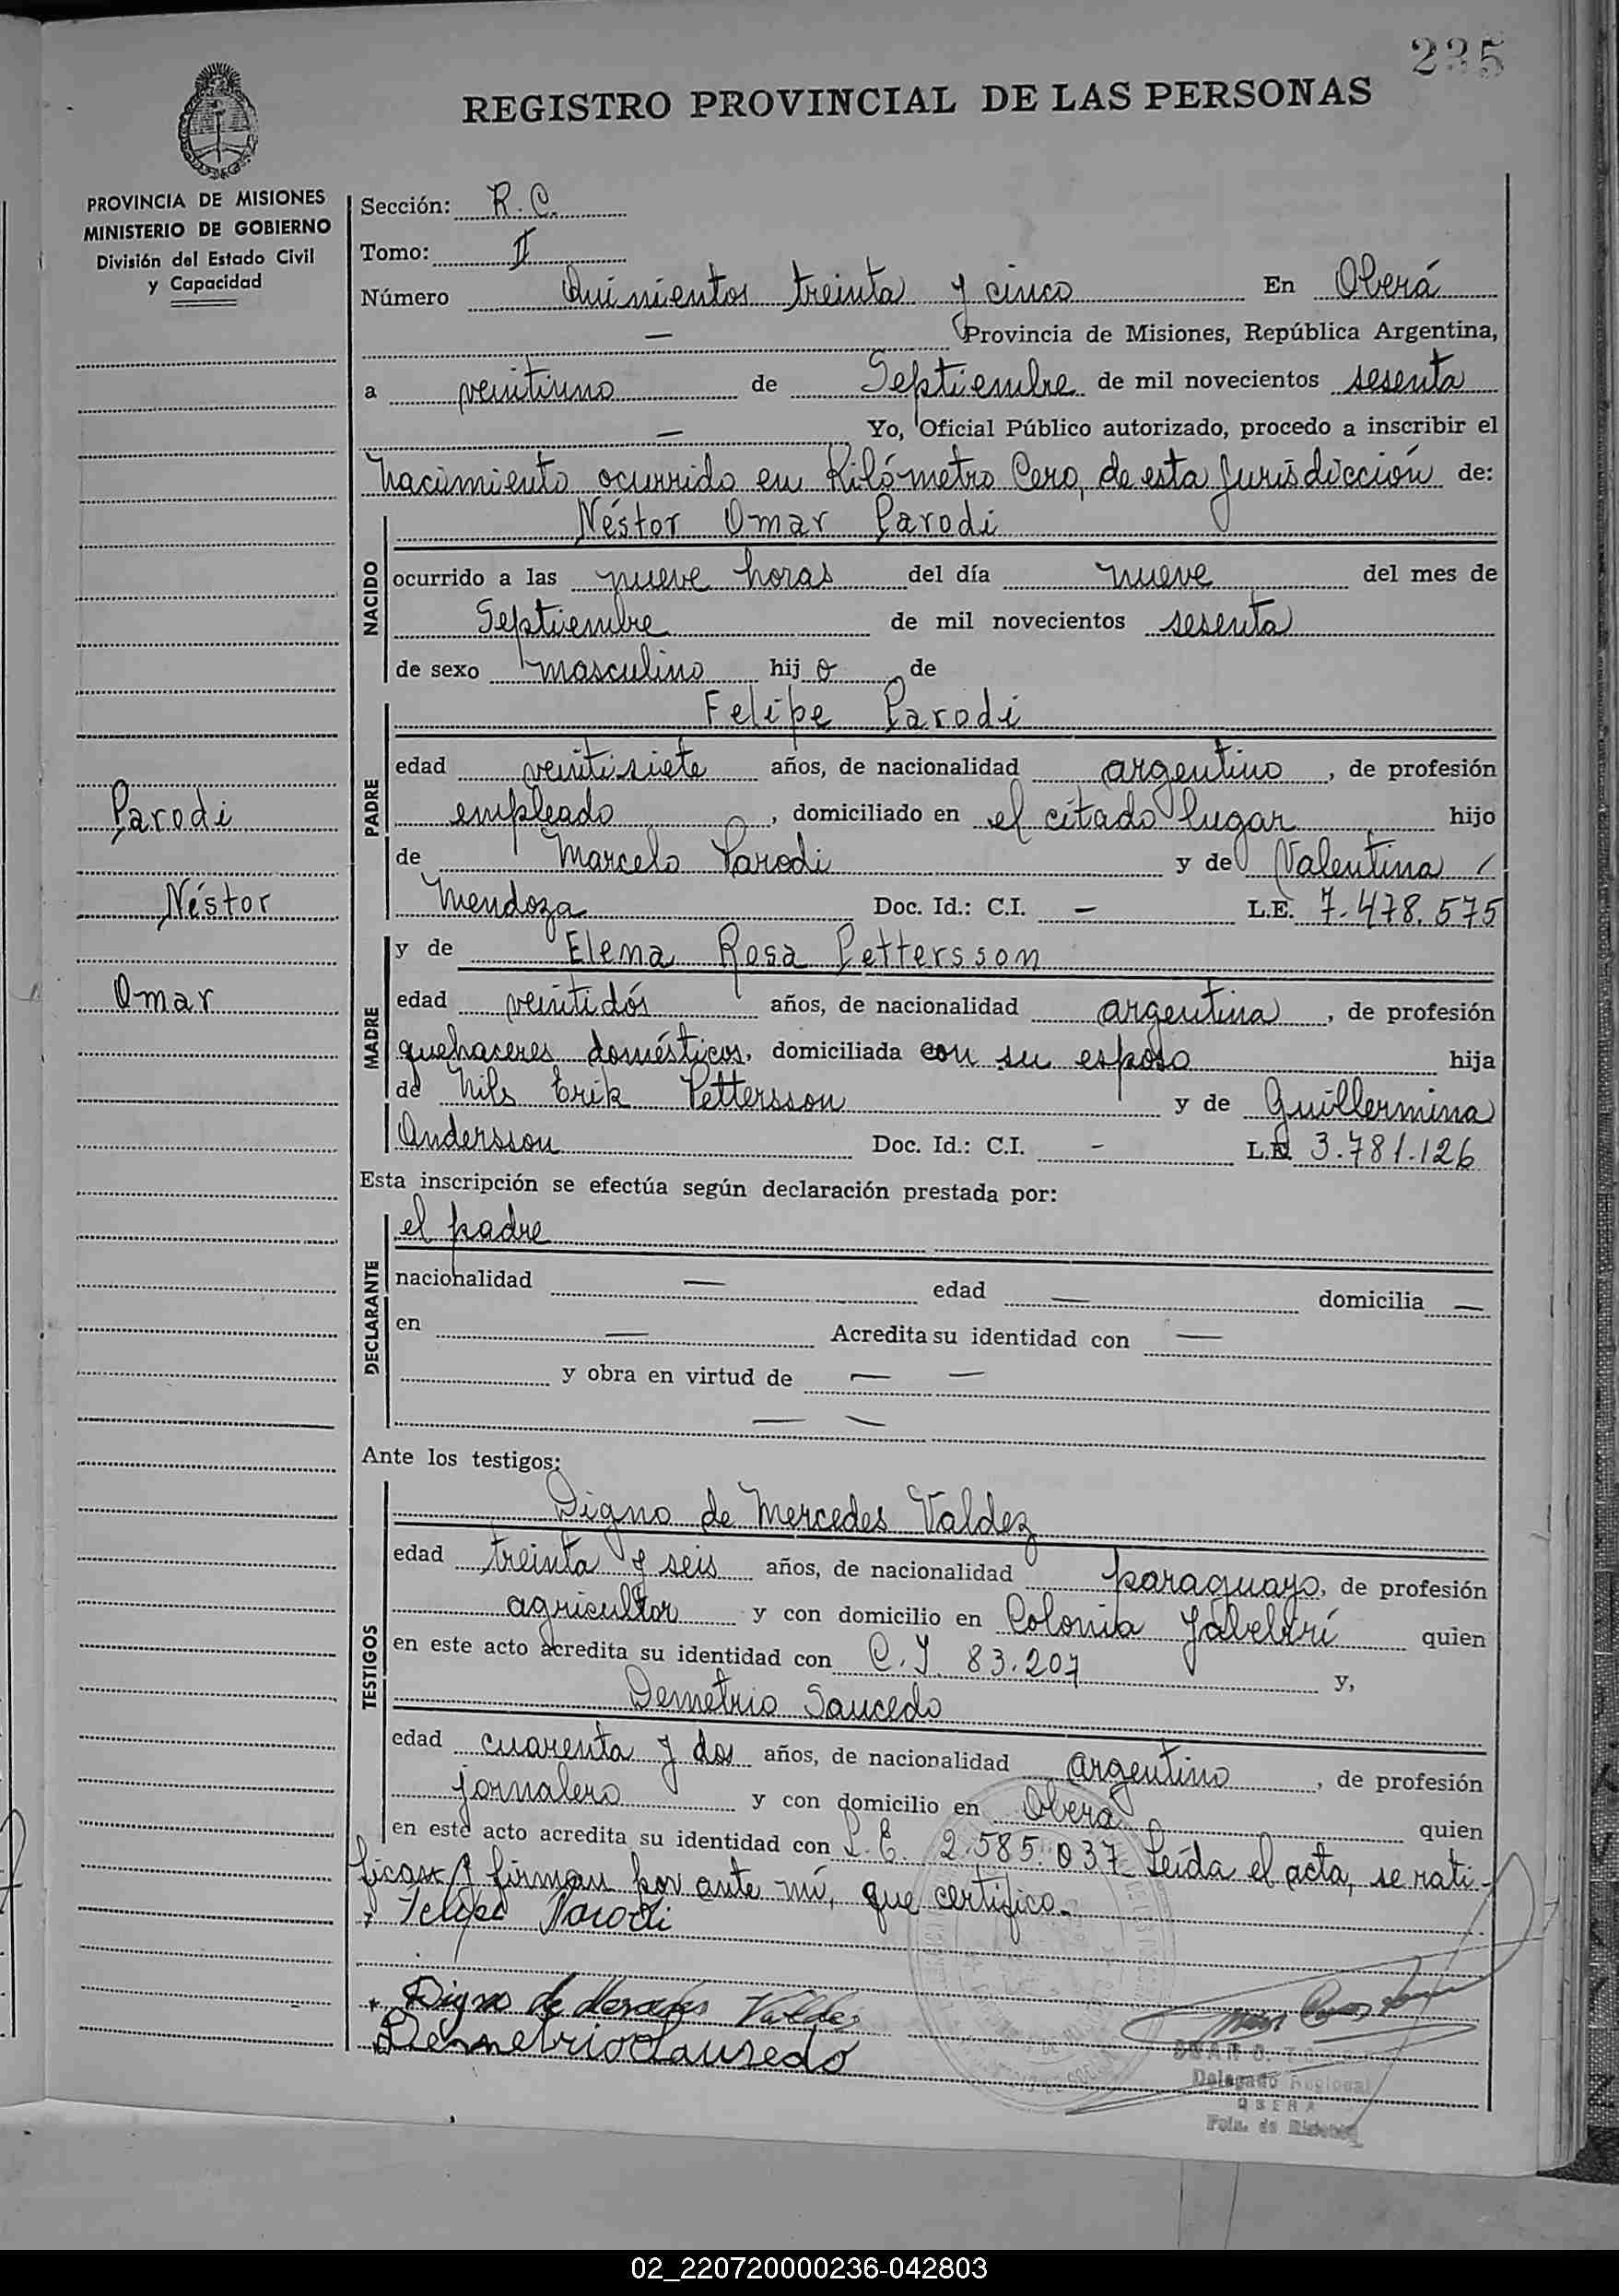 235
REGISTRO PROVINCIAL DE LAS PERSONAS
PROVINCIA DE MISIONES
MINISTERIO DE GOBIERNO
División del Estado Civil
y Capacidad
Parodi
Néstor
Omar
Sección: R. C.
Tomo: II
Número Quinientos treinta y cinco En Oberá
— Provincia de Misiones, República Argentina,
a veintiuno de Septiembre de mil novecientos sesenta
— Yo, Oficial Público autorizado, procedo a inscribir el
nacimiento ocurrido en Kilómetro Cero, de esta Jurisdicción de:
NACIDO
Néstor Omar Parodi
ocurrido a las nueve horas del día nueve del mes de
Septiembre de mil novecientos sesenta
de sexo masculino hij o de
PADRE
Felipe Parodi
edad veintisiete años, de nacionalidad argentino, de profesión
empleado, domiciliado en el citado lugar hijo
de Marcelo Parodi y de Valentina /
Mendoza Doc. Id.: C.I. — L.E. 7.478.575
MADRE
y de Elena Rosa Pettersson
edad veintidós años, de nacionalidad argentina, de profesión
quehaceres domésticos, domiciliada con su esposo hija
de Nils Erik Pettersson y de Guillermina
Andersson Doc. Id.: C.I. - L.E. 3.781.126
Esta inscripción se efectúa según declaración prestada por:
DECLARANTE
el padre
nacionalidad — edad — domicilia —
en — Acredita su identidad con —
y obra en virtud de — —
— —
Ante los testigos:
TESTIGOS
Digno de Mercedes Valdez
edad treinta y seis años, de nacionalidad paraguayo, de profesión
agricultor y con domicilio en Colonia Yabebirí quien
en este acto acredita su identidad con C. I. 83.207 y,
Demetrio Saucedo
edad cuarenta y dos años, de nacionalidad argentino, de profesión
jornalero y con domicilio en Oberá quien
en este acto acredita su identidad con L. E. 2.585.037 Leída el acta, se rati-
fican y firman por ante mí, que certifico.-
Felipe Parodi
Digno de Mercedes Valdez
Demetrio Sausedo
Delegado Regional
OBERA
Pcia. de Misiones
02_220720000236-042803